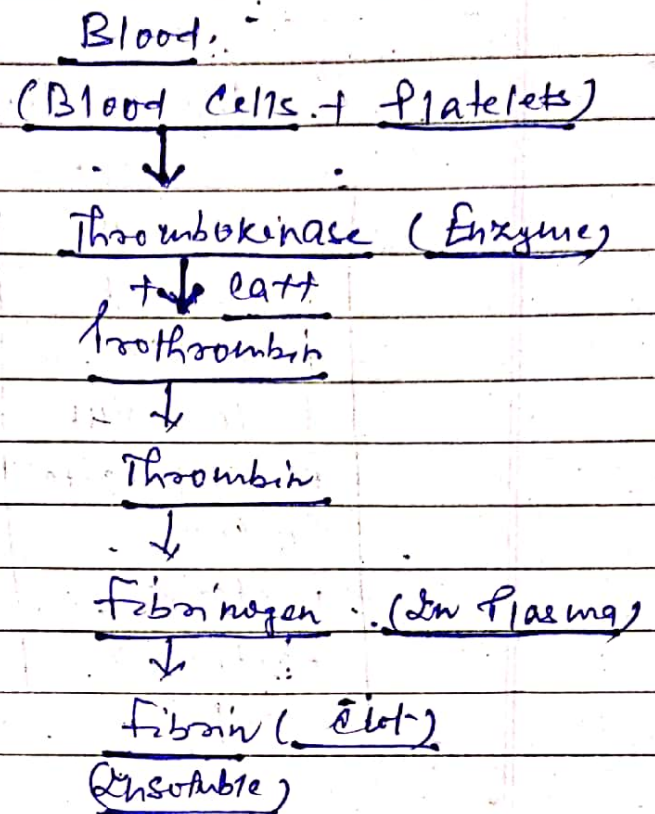 Blood.
(Blood Cells + Platelets)
↓
Thrombokinase (Enzyme)
+ ↓ Ca++
Prothrombin
↓
Thrombin
↓
Fibrinogen (In Plasma)
↓
Fibrin (Clot)
(Insoluble)